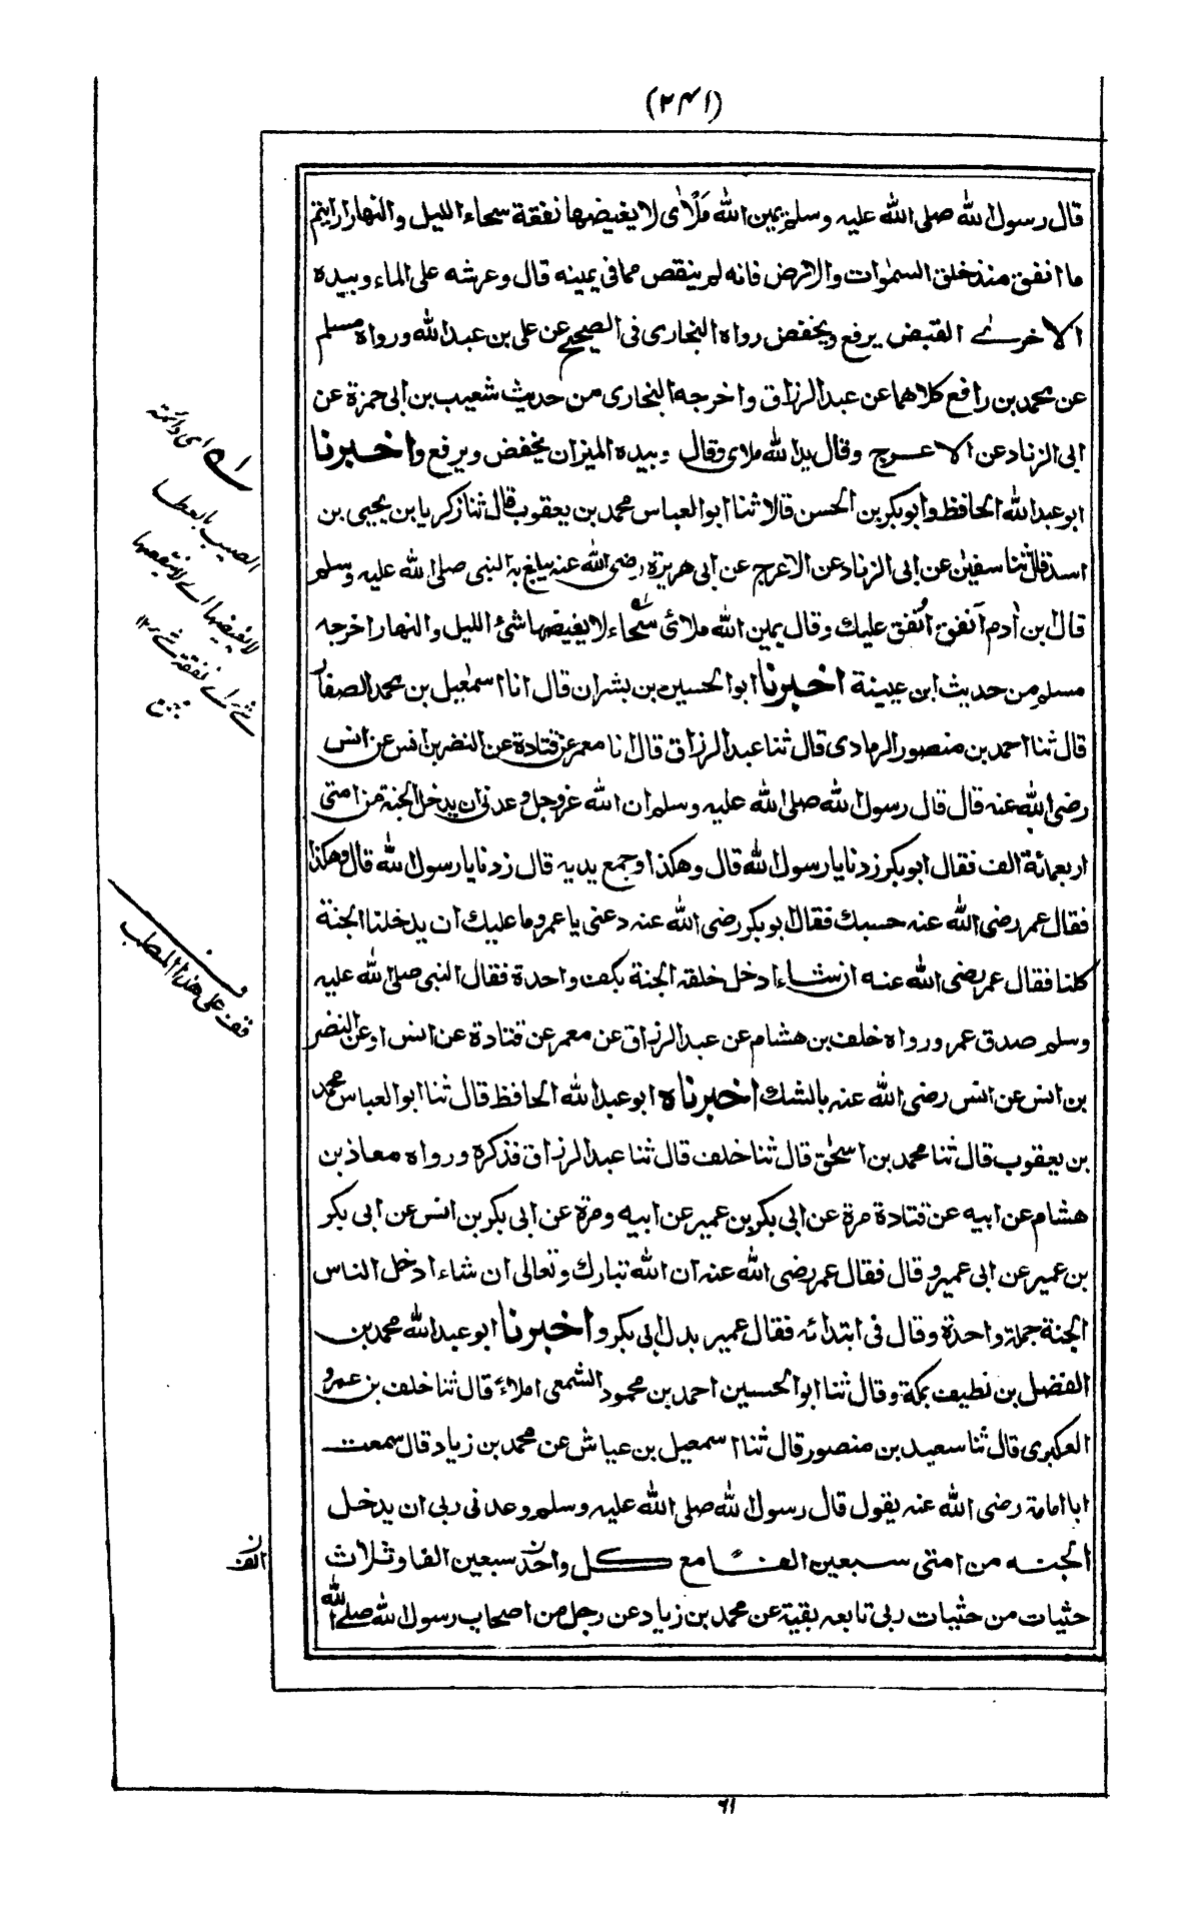 (٢٤١)
قال رسول الله صلى الله عليه وسلم يمين الله مَلْأى لا يغيضها نفقة سحاء الليل والنهار ارايتم
ما انفق منذ خلق السمٰوات والارض فانه لم ينقص مما في يمينه قال وعرشه على الماء وبيده
الاخرے القبض يرفع ويخفض رواه البخارى فى الصحيح عن على بن عبد الله ورواه مسلم
عن محمد بن رافع كلاهما عن عبد الرزاق واخرجه البخارى من حديث شعيب بن ابى حمزة عن
ابى الزناد عن الاعرج وقال يد الله ملاى وقال وبيده الميزان يخفض ويرفع واخبرنا
ابو عبد الله الحافظ وابو بكر بن الحسن قالا ثنا ابو العباس محمد بن يعقوب قال ثنا زكريا بن يحيى بن
اسد قال ثنا سفيٰن عن ابى الزناد عن الاعرج عن ابى هريرة رضى الله عنه يبلغ به النبى صلى الله عليه وسلم
قال بن اٰدم اَنفق اُنفق عليك وقال يمين الله ملائ سحاء لا يغيضها شئ الليل والنهار اخرجه
مسلم من حديث ابن عيينة اخبرنا ابو الحسين بن بشران قال انا اسمٰعيل بن محمد الصفار
قال ثنا احمد بن منصور الرمادى قال ثنا عبد الرزاق قال انا معمر عن قتادة عن النضر بن انس عن انس
رضى الله عنه قال قال رسول الله صلى الله عليه وسلم ان الله عز وجل وعدنى ان يدخل الجنة من امتى
اربعمائة الف فقال ابو بكر زدنا يا رسول الله قال وهكذا وجمع يديه قال زدنا يا رسول الله قال وهكذا
فقال عمر رضى الله عنه حسبك فقال ابو بكر رضى الله عنه دعنى يا عمر وما عليك ان يدخلنا الجنة
كلنا فقال عمر رضى الله عنه ان شاء ادخل خلقه الجنة بكف واحدة فقال النبى صلى الله عليه
وسلم صدق عمر ورواه خلف بن هشام عن عبد الرزاق عن معمر عن قتادة عن انس او عن النضر
بن انس عن انس رضى الله عنه بالشك اخبرناه ابو عبد الله الحافظ قال ثنا ابو العباس محمد
بن يعقوب قال ثنا محمد بن اسحٰق قال ثنا خلف قال ثنا عبد الرزاق فذكره ورواه معاذ بن
هشام عن ابيه عن قتادة مرة عن ابى بكر بن عمير عن ابيه ومرة عن ابى بكر بن انس عن ابى بكر
بن عمير عن ابى عمير و قال فقال عمر رضى الله عنه ان الله تبارك وتعالى ان شاء ادخل الناس
الجنة جملة واحدة وقال فى ابتدائه فقال عمير بدل ابى بكر واخبرنا ابو عبد الله محمد بن
الفضل بن نظيف بمكة وقال ثنا ابو الحسين احمد بن محمود الشمعى املاءً قال ثنا خلف بن عمرو
العكبرى قال ثنا سعيد بن منصور قال ثنا اسمعيل بن عياش عن محمد بن زياد قال سمعت
ابا امامة رضى الله عنه يقول قال رسول الله صلى الله عليه وسلم وعدنى ربى ان يدخل
الجنه من امتى سبعين الفا مع كل واحد سبعين الفا وثلاث
حثيات من حثيات ربى تابعه بقية عن محمد بن زياد عن رجل من اصحاب رسول الله صلے الله
اى دائمة
الصيب بالعطا
لا يغيضها اے لا ينقصها
شئ اے نفقة
قف على هذا المطلب
الف
٦١